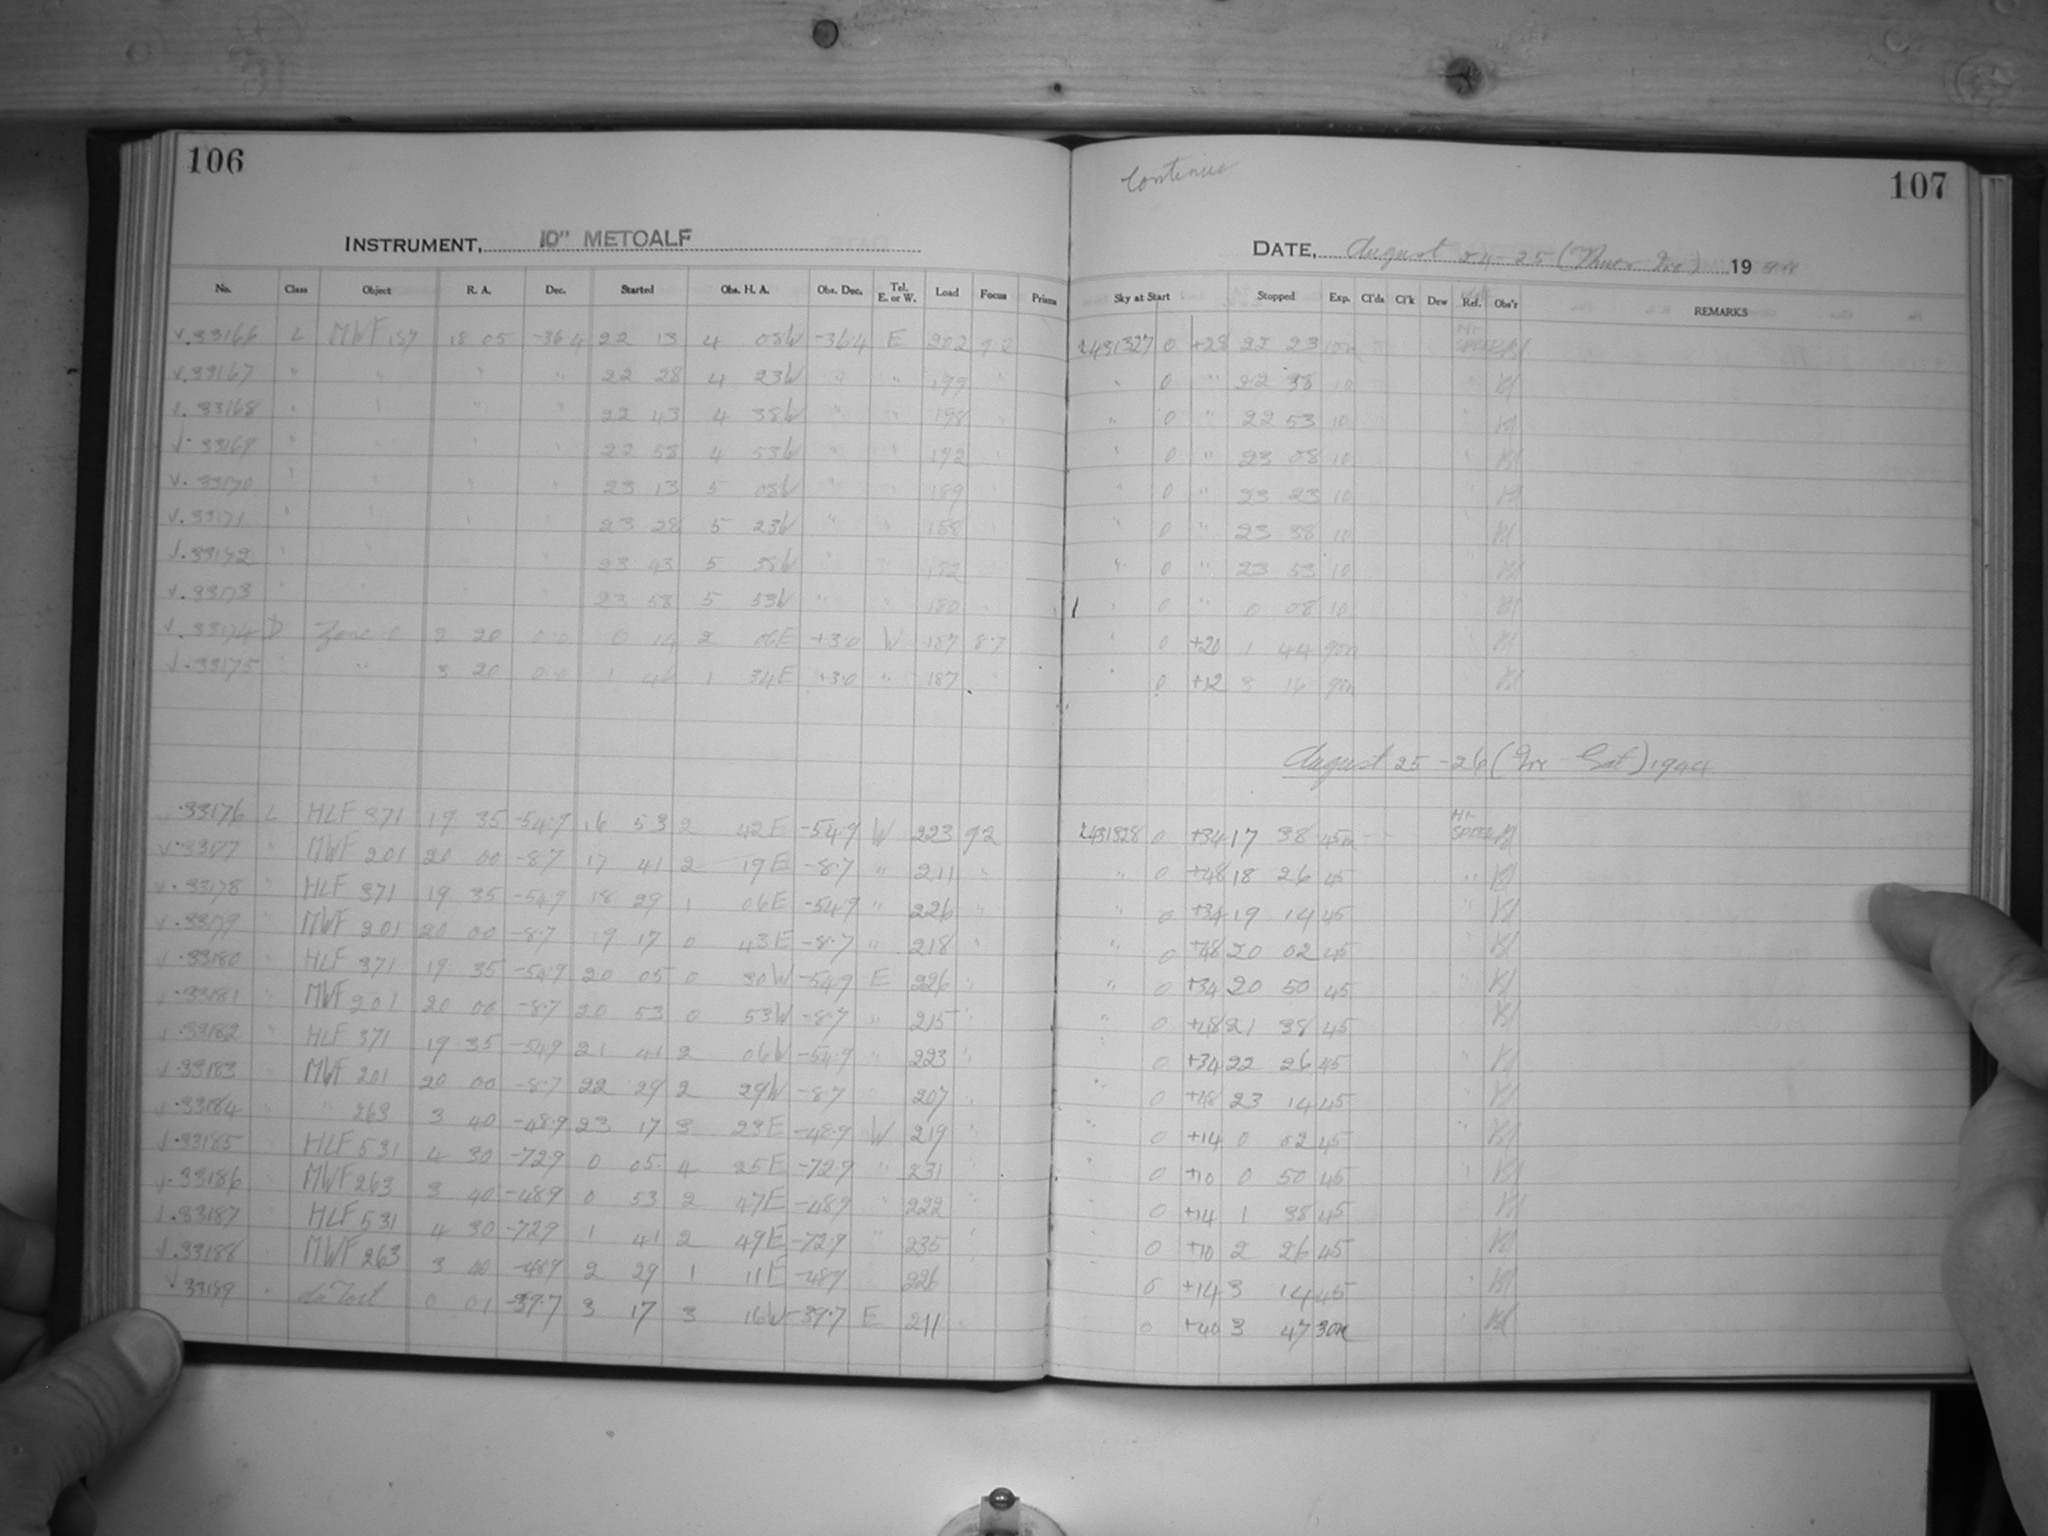 106
INSTRUMENT, 10" METCALF
No. Class Object R. A. Dec. Started Obs. H. A. Obs. Dec. Tel. E. or W. Load Focus Prisms
33166 L MWF 187 18 05 -36.4 22 13 4 08W -36.4 E 202 9.2
33167 " " " " 22 28 4 23W " " 197 "
33168 " " " " 22 43 4 38W " " 198
33169 " " " 22 58 4 53W " " 192
33170 " " " " 23 13 5 08W " " 189
33171 " " " 23 28 5 23W " " 188
33172 " " " 23 43 5 38W " "
33173 " 23 58 5 53W " " 180
33174 D Zone 0 2 20 0.0 0 14 2 06E +3.0 W 187 8.7
33175 " " 3 20 0.0 1 46 1 34E +3.0 " 187
33176 L HLF 371 19 35 -54.9 16 53 2 42E -54.9 W 223 9.2
33177 " MWF 201 20 00 -8.7 17 41 2 19E -8.7 " 211 "
33178 " HLF 371 19 35 -54.9 18 29 1 06E -54.9 " 226 "
33179 " MWF 201 20 00 -8.7 19 17 0 43E -8.7 " 218 "
33180 " HLF 371 19 35 -54.9 20 05 0 30W -54.9 E 226 "
33181 " MWF 201 20 00 -8.7 20 53 0 53W -8.7 " 215 "
33182 " HLF 371 19 35 -54.9 21 41 2 06W -54.9 " 223 "
33183 " MWF 201 20 00 -8.7 22 29 2 29W -8.7 " 207 "
33184 " " 263 3 40 -48.9 23 17 3 23E -48.9 W 219 "
33185 " HLF 531 4 30 -72.9 0 05 4 25E -72.9 " 231 "
33186 " MWF 263 3 40 -48.9 0 53 2 47E -48.9 " 222 "
33187 HLF 531 4 30 -72.9 1 41 2 49E -72.9 " 235 "
33188 " MWF 263 3 40 -48.9 2 29 1 11E -48.9 226
33189 " 0 01 -39.7 3 17 3 16W -39.7 E 211
Continue
107
DATE, August 24-25 (Thur-Fri) 1944
Sky at Start Stopped Exp. Cl'ds Cl'k Dew Ref. Obs'r REMARKS
431327 0 +28 22 23 10m HI-SPEED
" 0 " 22 38 10 "
" 0 " 22 53 10
" 0 " 23 08 10 "
" 0 " 23 23 10 "
" 0 " 23 38 10
" 0 " 23 53 10
" 0 " 0 08 10
" 0 +20 1 44 90m "
" 0 +12 3 16 90m
August 25-26 (Fri-Sat) 1944
431328 0 +34 17 38 45m HI-SPEED
" 0 +48 18 26 45 "
" 0 +34 19 14 45 "
" 0 +48 20 02 45 "
" 0 +34 20 50 45 "
" 0 +48 21 38 45 "
" 0 +34 22 26 45 "
" 0 +48 23 14 45 "
" 0 +14 0 02 45 "
" 0 +10 0 50 45 "
" 0 +14 1 38 45 "
0 +10 2 26 45
0 +14 3 14 45
0 +40 3 47 30m